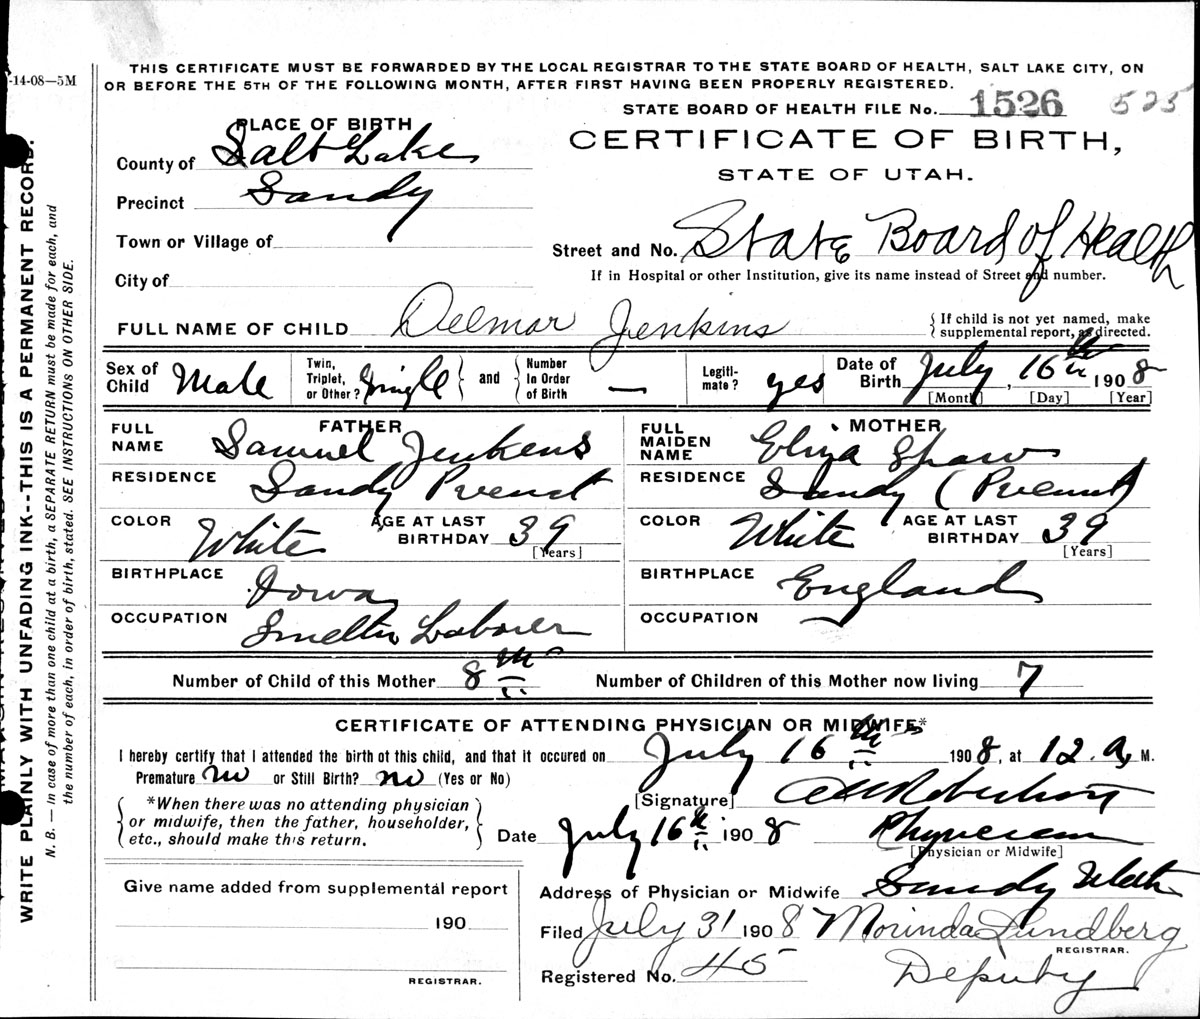 -14-08—5M
THIS CERTIFICATE MUST BE FORWARDED BY THE LOCAL REGISTRAR TO THE STATE BOARD OF HEALTH, SALT LAKE CITY, ON
OR BEFORE THE 5TH OF THE FOLLOWING MONTH, AFTER FIRST HAVING BEEN PROPERLY REGISTERED.
STATE BOARD OF HEALTH FILE No. 1526 525
PLACE OF BIRTH
CERTIFICATE OF BIRTH,
STATE OF UTAH.
County of Salt Lake
Precinct Sandy
Town or Village of
Street and No. State Board of Health
If in Hospital or other Institution, give its name instead of Street and number.
City of
FULL NAME OF CHILD Delmar Jenkins
{ If child is not yet named, make
supplemental report, as directed.
Sex of Child Male
Twin, Triplet, or Other? Single } and { Number In Order of Birth —
Legiti- mate? yes
Date of Birth July, 16th 1908
[Month] [Day] [Year]
FATHER
FULL NAME Samuel Jenkens
RESIDENCE Sandy Precnct
COLOR White AGE AT LAST BIRTHDAY 39
[Years]
BIRTHPLACE Iowa
OCCUPATION Smelter Laborer
MOTHER
FULL MAIDEN NAME Eliza Shaw
RESIDENCE Sandy (Precnct)
COLOR White AGE AT LAST BIRTHDAY 39
[Years]
BIRTHPLACE England
OCCUPATION
Number of Child of this Mother 8th Number of Children of this Mother now living 7
CERTIFICATE OF ATTENDING PHYSICIAN OR MIDWIFE*
I hereby certify that I attended the birth of this child, and that it occured on July 16th 1908, at 12.a M.
Premature no or Still Birth? no (Yes or No)
{ *When there was no attending physician
or midwife, then the father, householder,
etc., should make this return. }
[Signature] Robertson
Date July 16th 1908 Physician
[Physician or Midwife]
Give name added from supplemental report
190
REGISTRAR.
Address of Physician or Midwife Sandy Utah
Filed July 31 1908 Morinda Lundberg
REGISTRAR.
Registered No. 45 Deputy
WRITE PLAINLY WITH UNFADING INK--THIS IS A PERMANENT RECORD.
N. B. — In case of more than one child at a birth, a SEPARATE RETURN must be made for each, and
the number of each, in order of birth, stated. SEE INSTRUCTIONS ON OTHER SIDE.